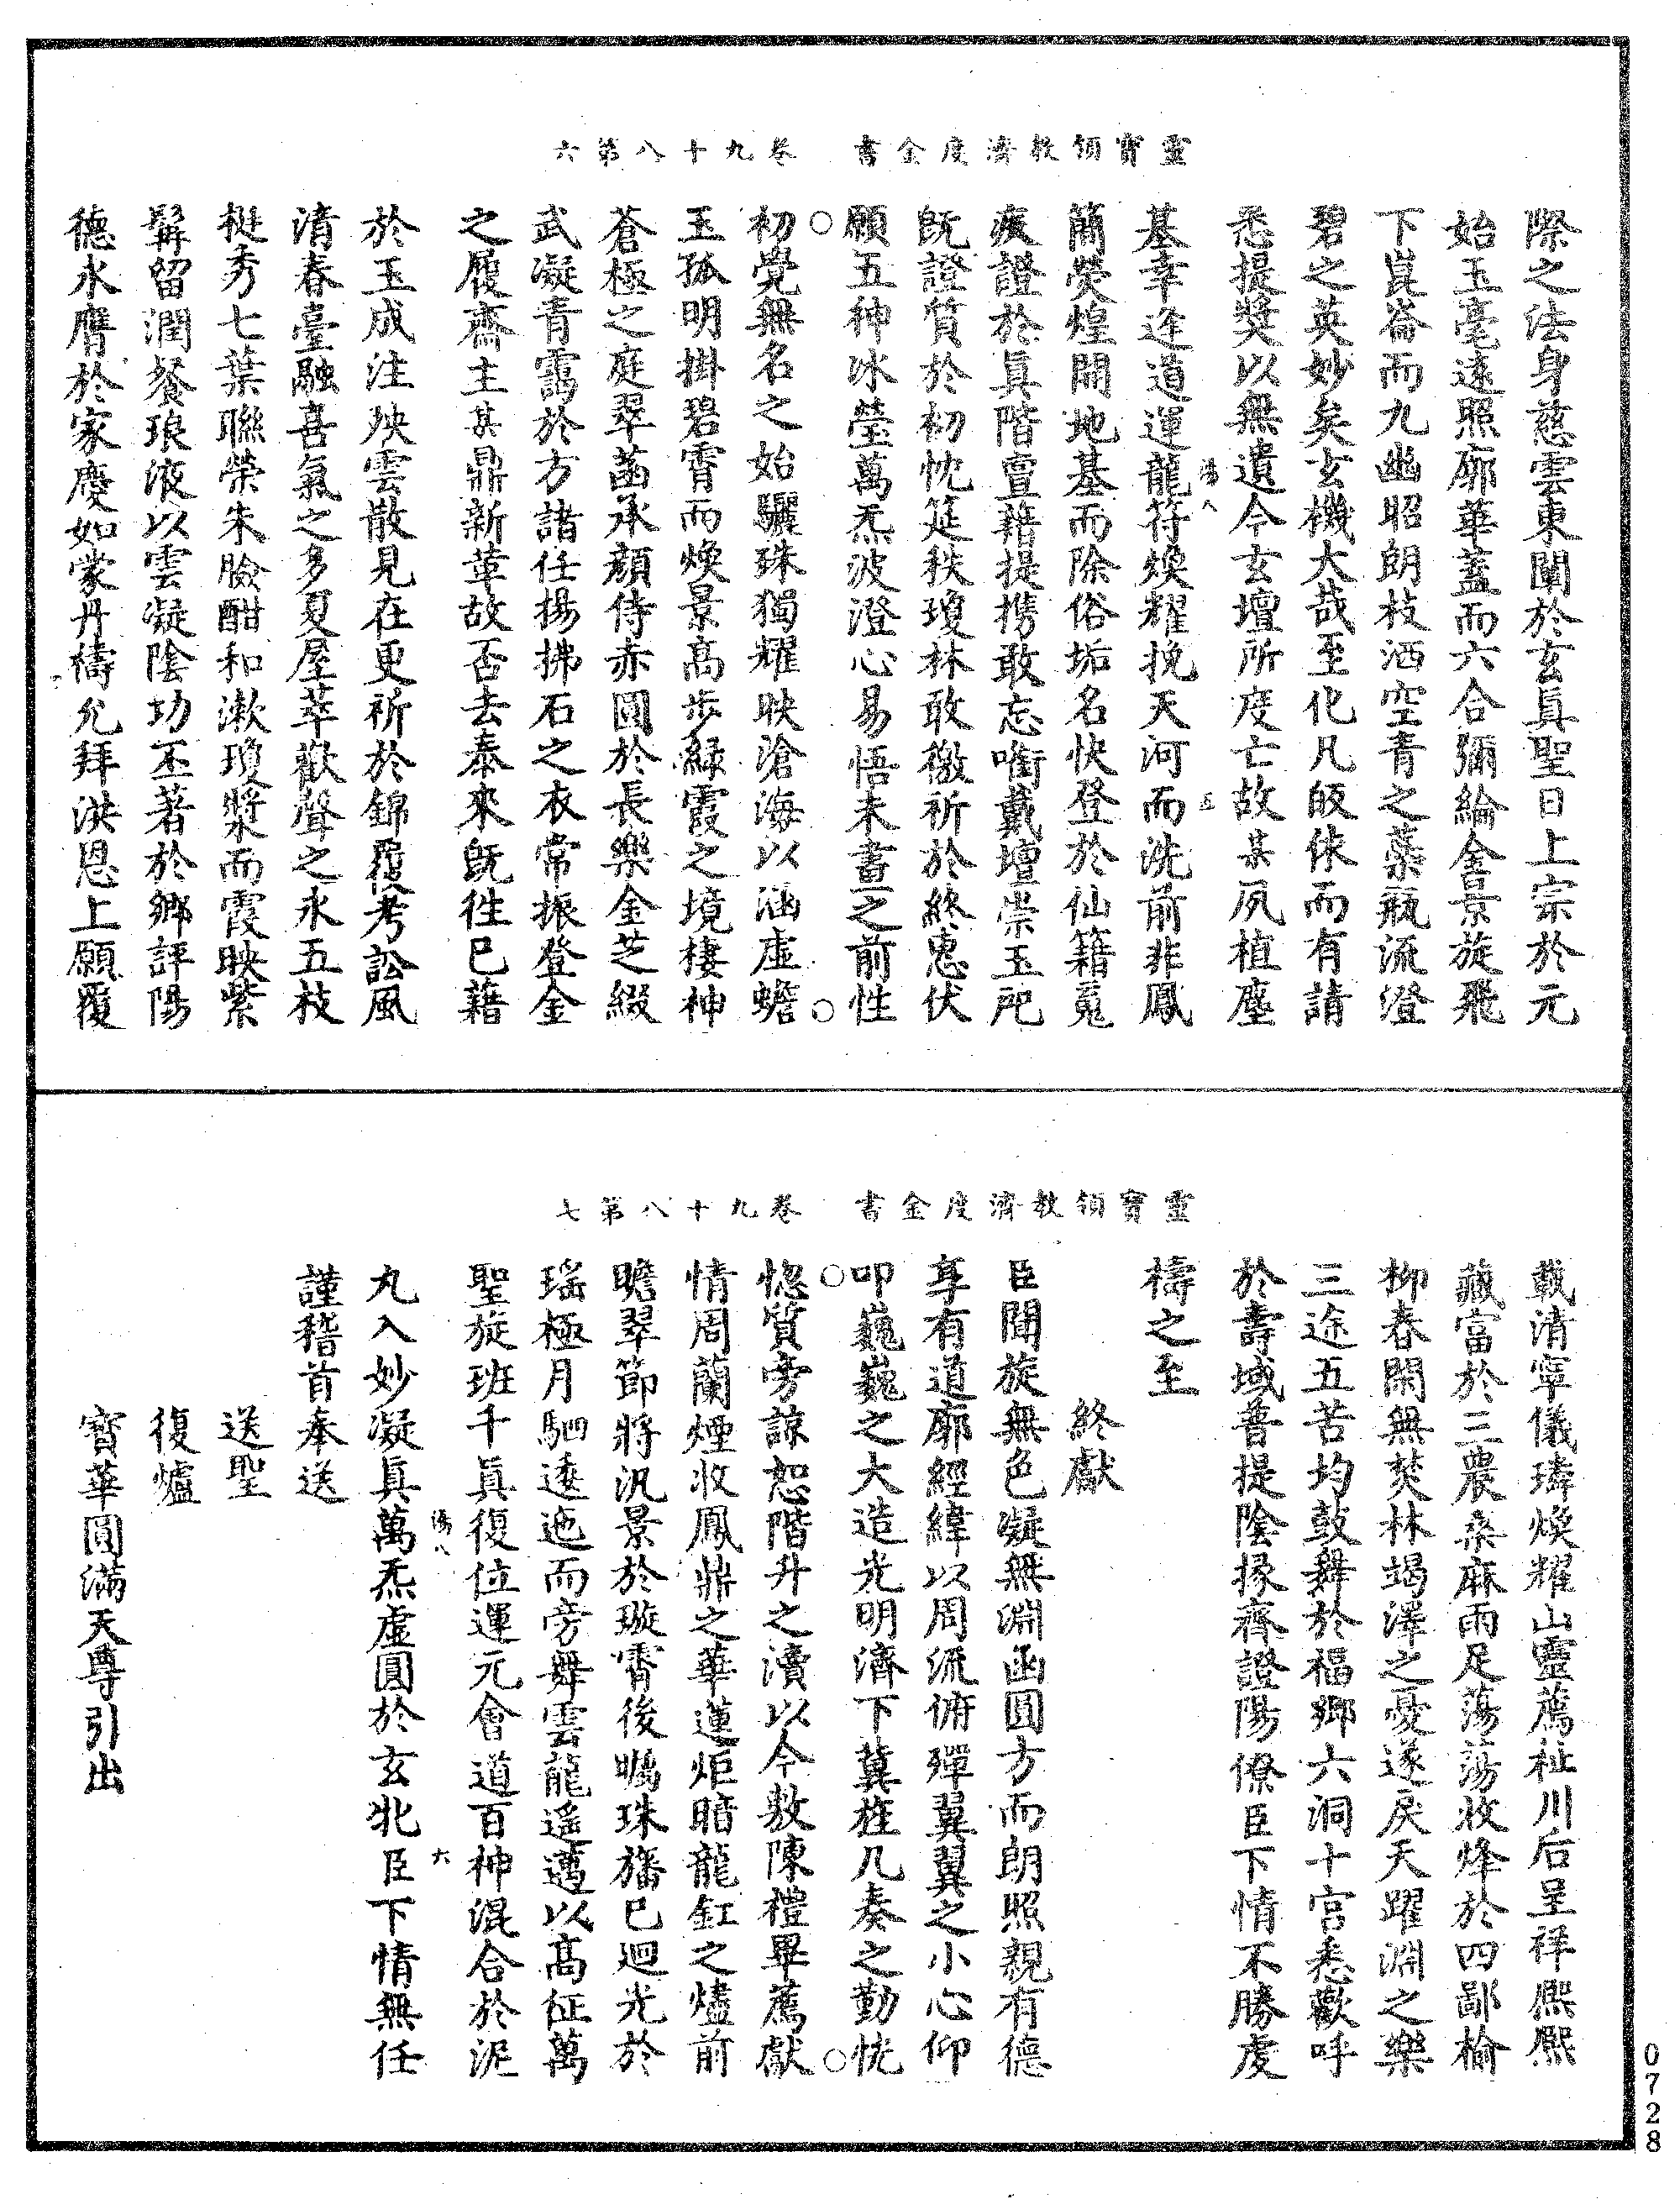 靈寶領教濟度金書　卷九十八第六
際之法身慈雲東闡於玄眞聖日上宗於元
始玉毫遠照廓華蓋而六合彌綸金景旋飛
下崑崙而九幽昭朗枝洒空青之蘂瓶流澄
碧之英妙矣玄機大哉至化凡皈倈而有請
悉提獎以無遺今玄壇所度亡故某夙植塵
基幸逢道運龍符煥耀挽天河而洗前非鳳
簡熒煌開地基而除俗垢名快登於仙籍冤
疾證於眞階亶藉提携敢忘啣戴壇崇玉兕
既證質於初忱筵秩瓊林敢徼祈於終惠伏
願五神冰瑩萬炁波澄心易悟未畫之前性
初覺無名之始驪珠獨耀映滄海以涵虛蟾
玉孤明掛碧霄而煥景高步緑霞之境棲神
蒼極之庭翠菡承顏侍赤圓於長樂金芝綴
武凝青靄於方諸任揚拂石之衣常振登金
之履齋主某鼎新葦故否去泰來既徃巳藉
於玉成注玦雲散見在更祈於錦覆考訟風
清春臺融喜氣之多夏屋萃歡聲之永五枝
梃秀七葉聯榮朱臉酣和漱瓊漿而霞映紫
髯留潤餐琅液以雲凝陰功丕著於鄉評陽
德永膺於家慶如蒙丹禱允拜洪恩上願覆
湯八　五
靈寶領教濟度金書　卷九十八第七
載清寧儀璘煥耀山靈薦祉川后呈祥熙熙
藏富於三農桑麻雨足蕩蕩收烽於四鄙榆
柳春閑無焚林竭澤之憂遂戾天躍淵之樂
三途五苦均鼓舞於福鄉六洞十宮悉歡呼
於壽域普提陰掾齊證陽僚臣下情不勝虔
禱之至
終獻
臣聞旋無色凝無淵函圓方而朗照親有德
享有道廓經緯以周流俯殫翼翼之小心仰
叩巍巍之大造光明濟下冀旌几奏之勤恍
惚質旁諒恕階升之瀆以今敷陳禮畢薦獻
情周蘭煙收鳳鼎之華蓮炬暗龍釭之燼前
瞻翠節將汎景於璇霄後矚珠旛巳迴光於
瑤極月駟逶迤而旁舞雲龍遥邁以高征萬
聖旋班千眞復位運元會道百神混合於泥
丸入妙凝眞萬炁虛圓於玄牝臣下情無任
謹稽首奉送
送聖
復爐
寶華圓滿天尊引出
湯八　六
0728